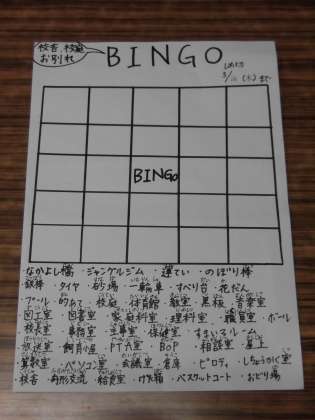 校舎、校庭
お別れ
BINGO
しめきり
3/10 (木)まで
BINGO
・なかよし橋 ・ジャングルジム ・運てい ・のぼり棒
・鉄棒 ・タイヤ ・砂場 ・一輪車 ・すべり台 ・花だん
・プール ・的あて ・校庭 ・体育館 ・教室 ・黒板 ・音楽室
・図工室 ・図書室 ・家庭科室 ・理科室 ・職員室 ・ボール
・校長室 ・事務室 ・主事室 ・保健室 ・すまいるルーム
・放送室 ・飼育小屋 ・PTA室 ・BOP ・相談室 ・屋上
・算数室 ・パソコン室 ・会議室 ・倉庫 ・ピロティ ・しちょうかく室
・校舎 ・給食室 ・げた箱 ・バスケットコート ・おどり場